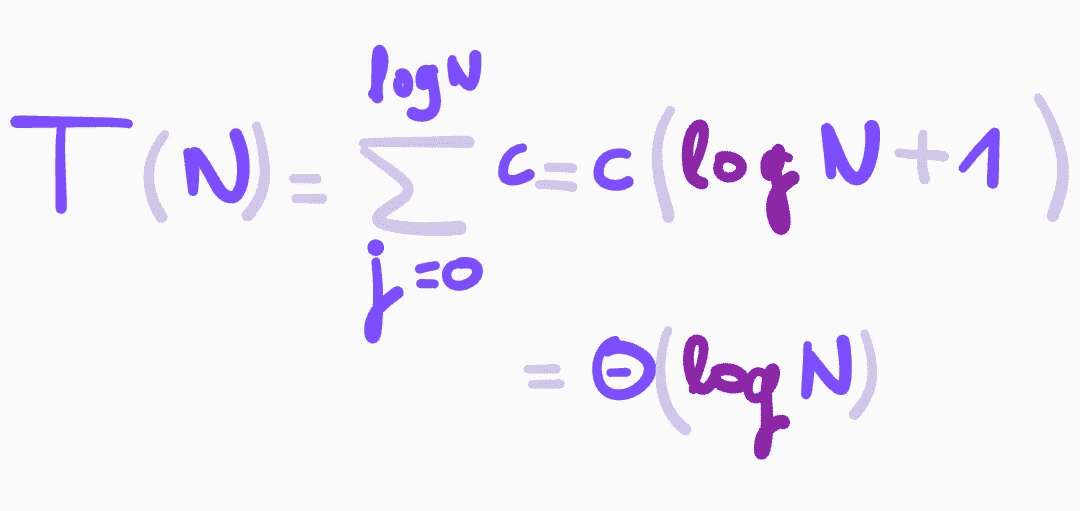 T(N) = \sum_{j=0}^{log N} c = c (log N + 1)
= Θ(log N)